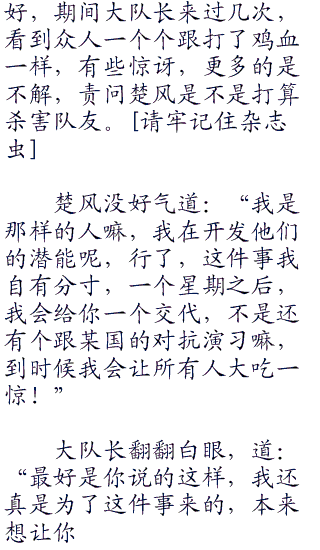 好，期间大队长来过几次，
看到众人一个个跟打了鸡血
一样，有些惊讶，更多的是
不解，责问楚风是不是打算
杀害队友。[请牢记住杂志
虫]
楚风没好气道：“我是
那样的人嘛，我在开发他们
的潜能呢，行了，这件事我
自有分寸，一个星期之后，
我会给你一个交代，不是还
有个跟某国的对抗演习嘛，
到时候我会让所有人大吃一
惊！”
大队长翻翻白眼，道：
“最好是你说的这样，我还
真是为了这件事来的，本来
想让你